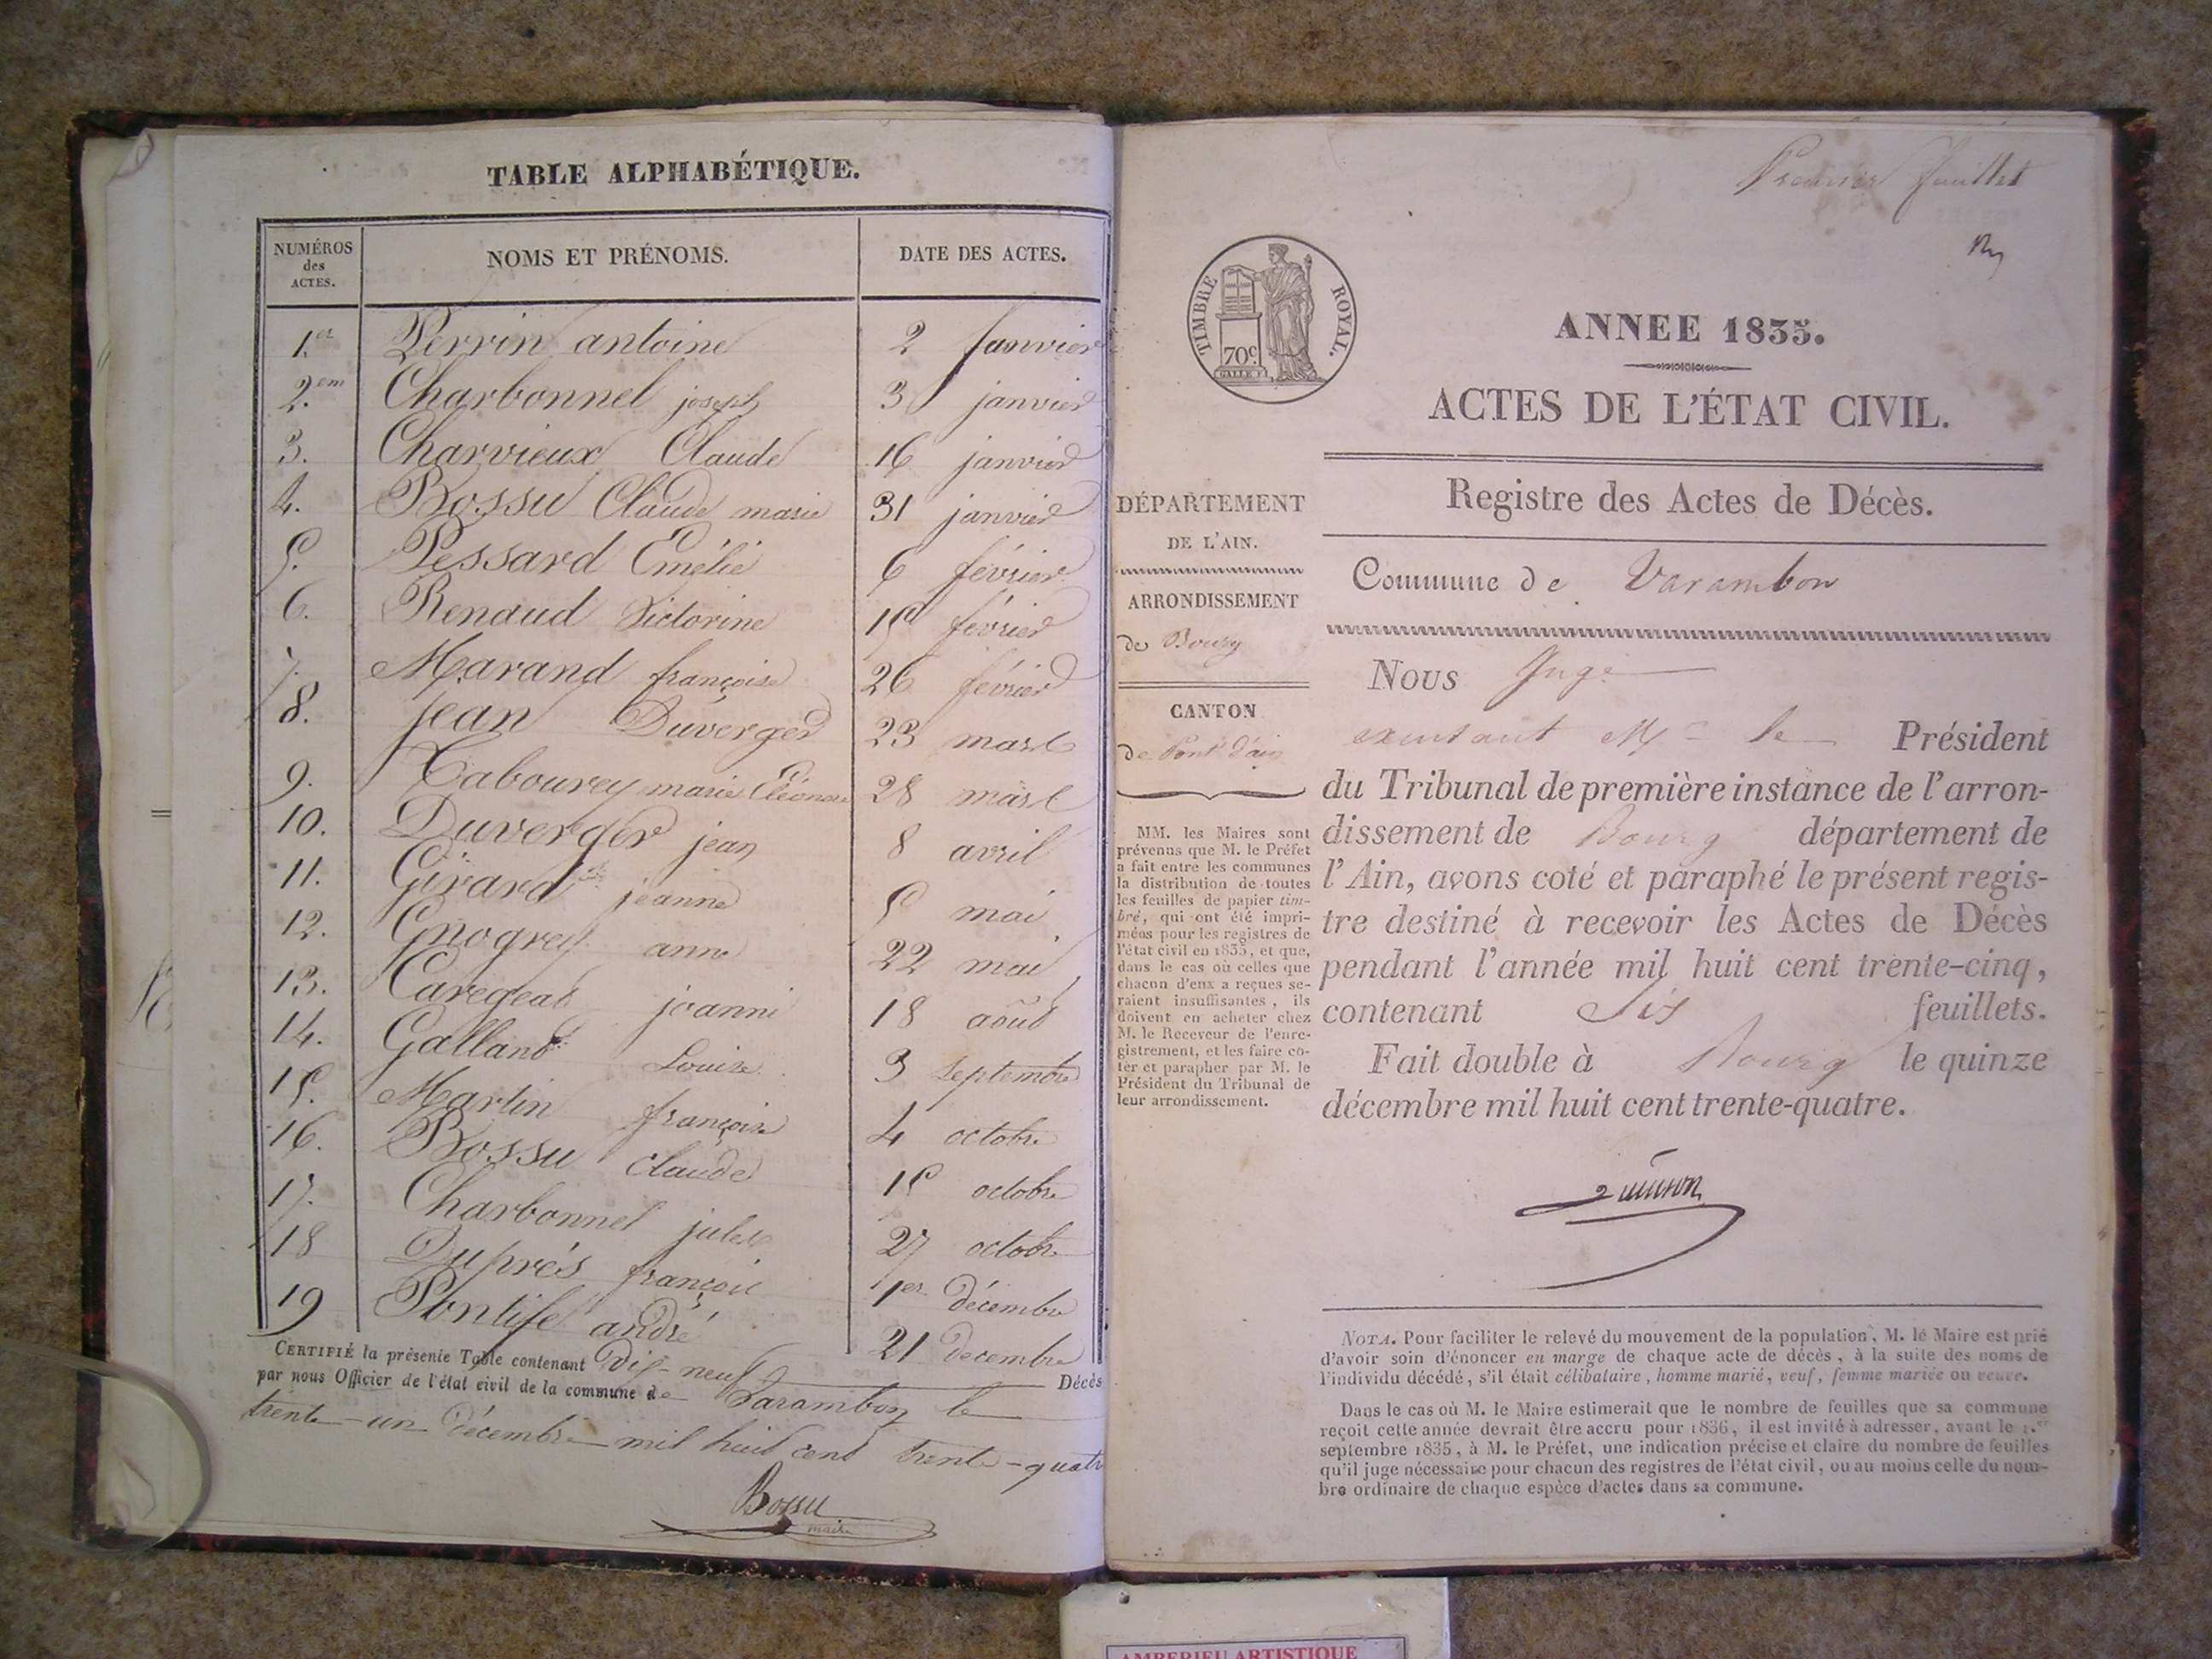 TABLE ALPHABÉTIQUE.
NUMÉROS des ACTES. NOMS ET PRÉNOMS. DATE DES ACTES.
1.er Perrin antoine 2 janvier
2.em Charbonnel joseph 3 janvier
3. Charvieux Claude 16 janvier
4. Bossu Claude marie 31 janvier
5. Pessard Emélie 6 février
6. Renaud Victorine 15 février
7. Marand françoise 26 février
8. jean Duverger 23 mars
9. Tabourey marie Eléonore 28 mars
10. Duverger jean 8 avril
11. Girard jeanne 5 mai
12. Gnogrey anne 22 mai
13. joanni 18 août
14. Galland Louise 3 septembre
15. Martin françoise 4 octobre
16. Bossu Claude 15 octobre
17. Charbonnel jules 27 octobre
18 Duprés françois 1er décembre
19 Pontife andré 21 decembre
CERTIFIÉ la présente Table contenant Dix-neuf Décès
par nous Officier de l'état civil de la commune de Varambon le
trente-un décembre mil huit cent trente-quatre
Bossu
maire
Premier feuillet
TIMBRE ROYAL.
70c
ANNEE 1835.
ACTES DE L'ÉTAT CIVIL.
Registre des Actes de Décès.
Commune de Varambon
DÉPARTEMENT
DE L'AIN.
ARRONDISSEMENT
de Bourg
CANTON
de Pont d'ain
MM. les Maires sont
prévenus que M. le Préfet
a fait entre les communes
la distribution de toutes
les feuilles de papier tim-
bré, qui ont été impri-
mées pour les registres de
l'état civil en 1835, et que,
dans le cas où celles que
chacun d'eux a reçues se-
raient insuffisantes, ils
doivent en acheter chez
M. le Receveur de l'enre-
gistrement, et les faire co-
ter et parapher par M. le
Président du Tribunal de
leur arrondissement.
Nous Juge
exemtant Mr le Président
du Tribunal de première instance de l'arron-
dissement de Bourg département de
l'Ain, avons coté et paraphé le présent regis-
tre destiné à recevoir les Actes de Décès
pendant l'année mil huit cent trente-cinq,
contenant Six feuillets.
Fait double à Bourg le quinze
décembre mil huit cent trente-quatre.
NOTA. Pour faciliter le relevé du mouvement de la population, M. le Maire est prié
d'avoir soin d'énoncer en marge de chaque acte de décès, à la suite des noms de
l'individu décédé, s'il était célibataire, homme marié, veuf, femme mariée ou veuve.
Dans le cas où M. le Maire estimerait que le nombre de feuilles que sa commune
reçoit cette année devrait être accru pour 1836, il est invité à adresser, avant le 1.er
septembre 1835, à M. le Préfet, une indication précise et claire du nombre de feuilles
qu'il juge nécessaire pour chacun des registres de l'état civil, ou au moins celle du nom-
bre ordinaire de chaque espèce d'actes dans sa commune.
AMBERIEU ARTISTIQUE